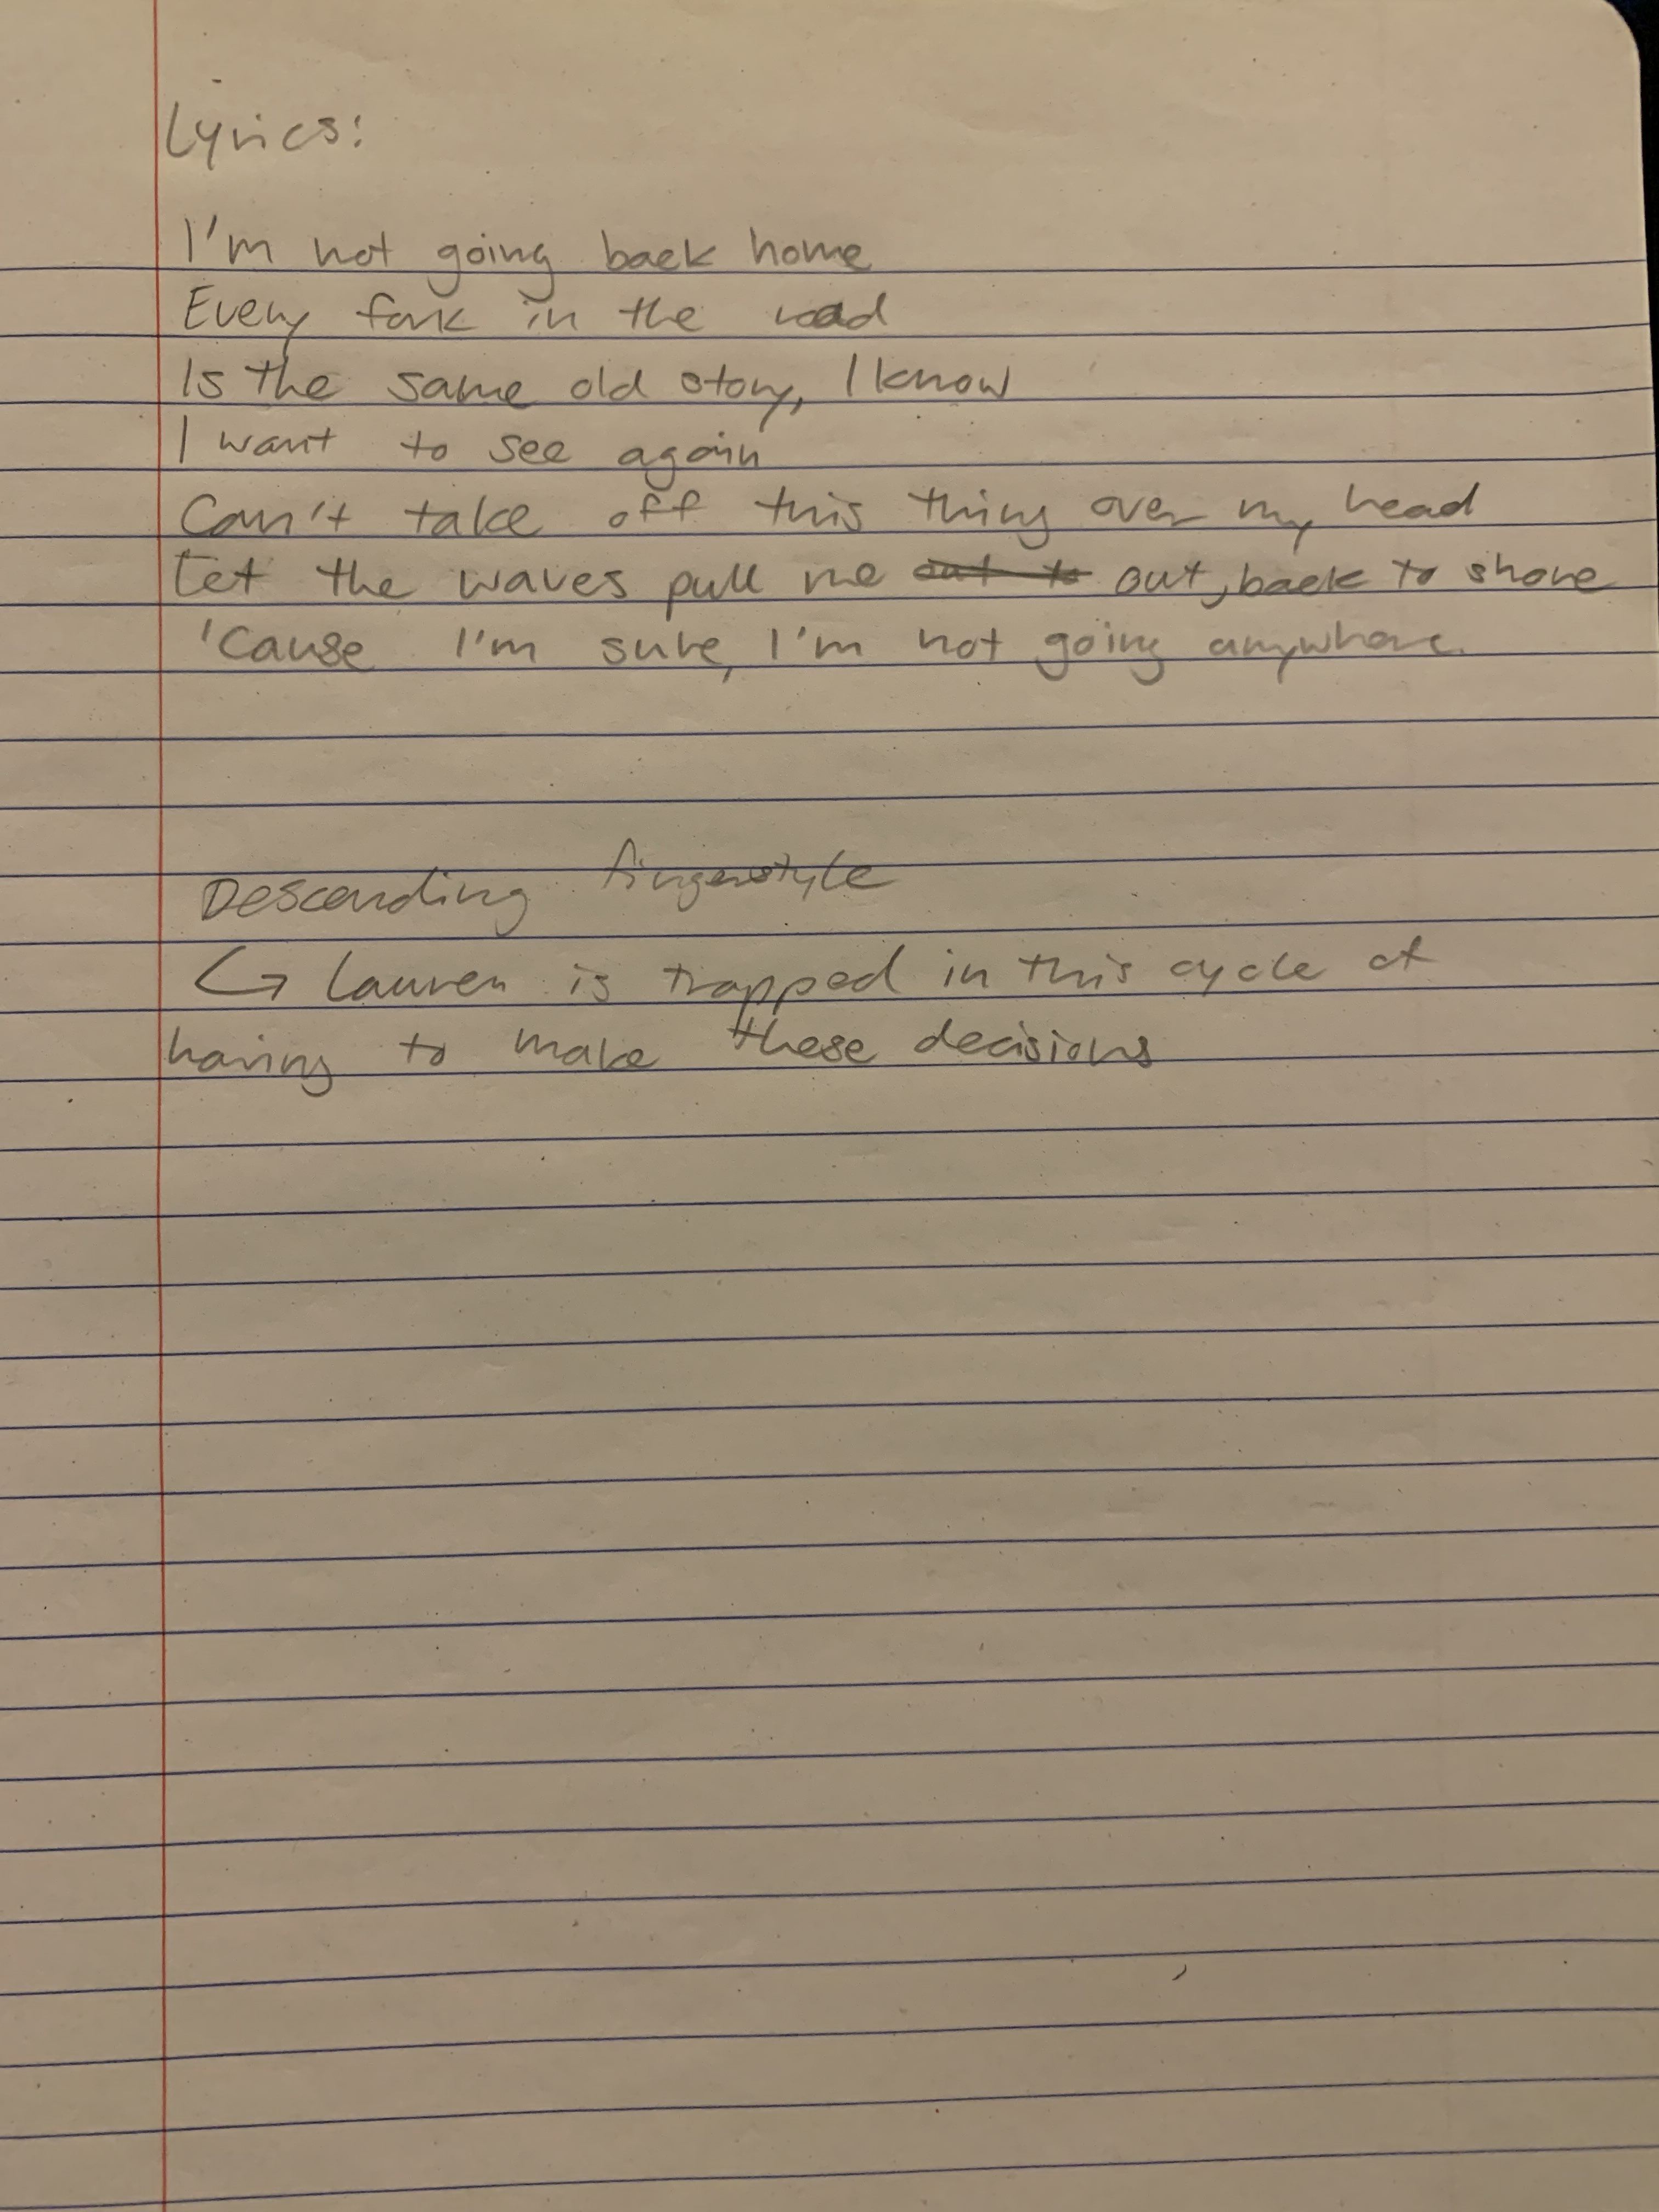 Lyrics:
I'm not going back home
Every fork in the road
Is the same old story, I know
I want to see again
Can't take off this thing over my head
Let the waves pull me out to out, back to shore
'Cause I'm sure, I'm not going anywhere.
Descending fingerstyle
↳ Lauren is trapped in this cycle of
having to make these decisions